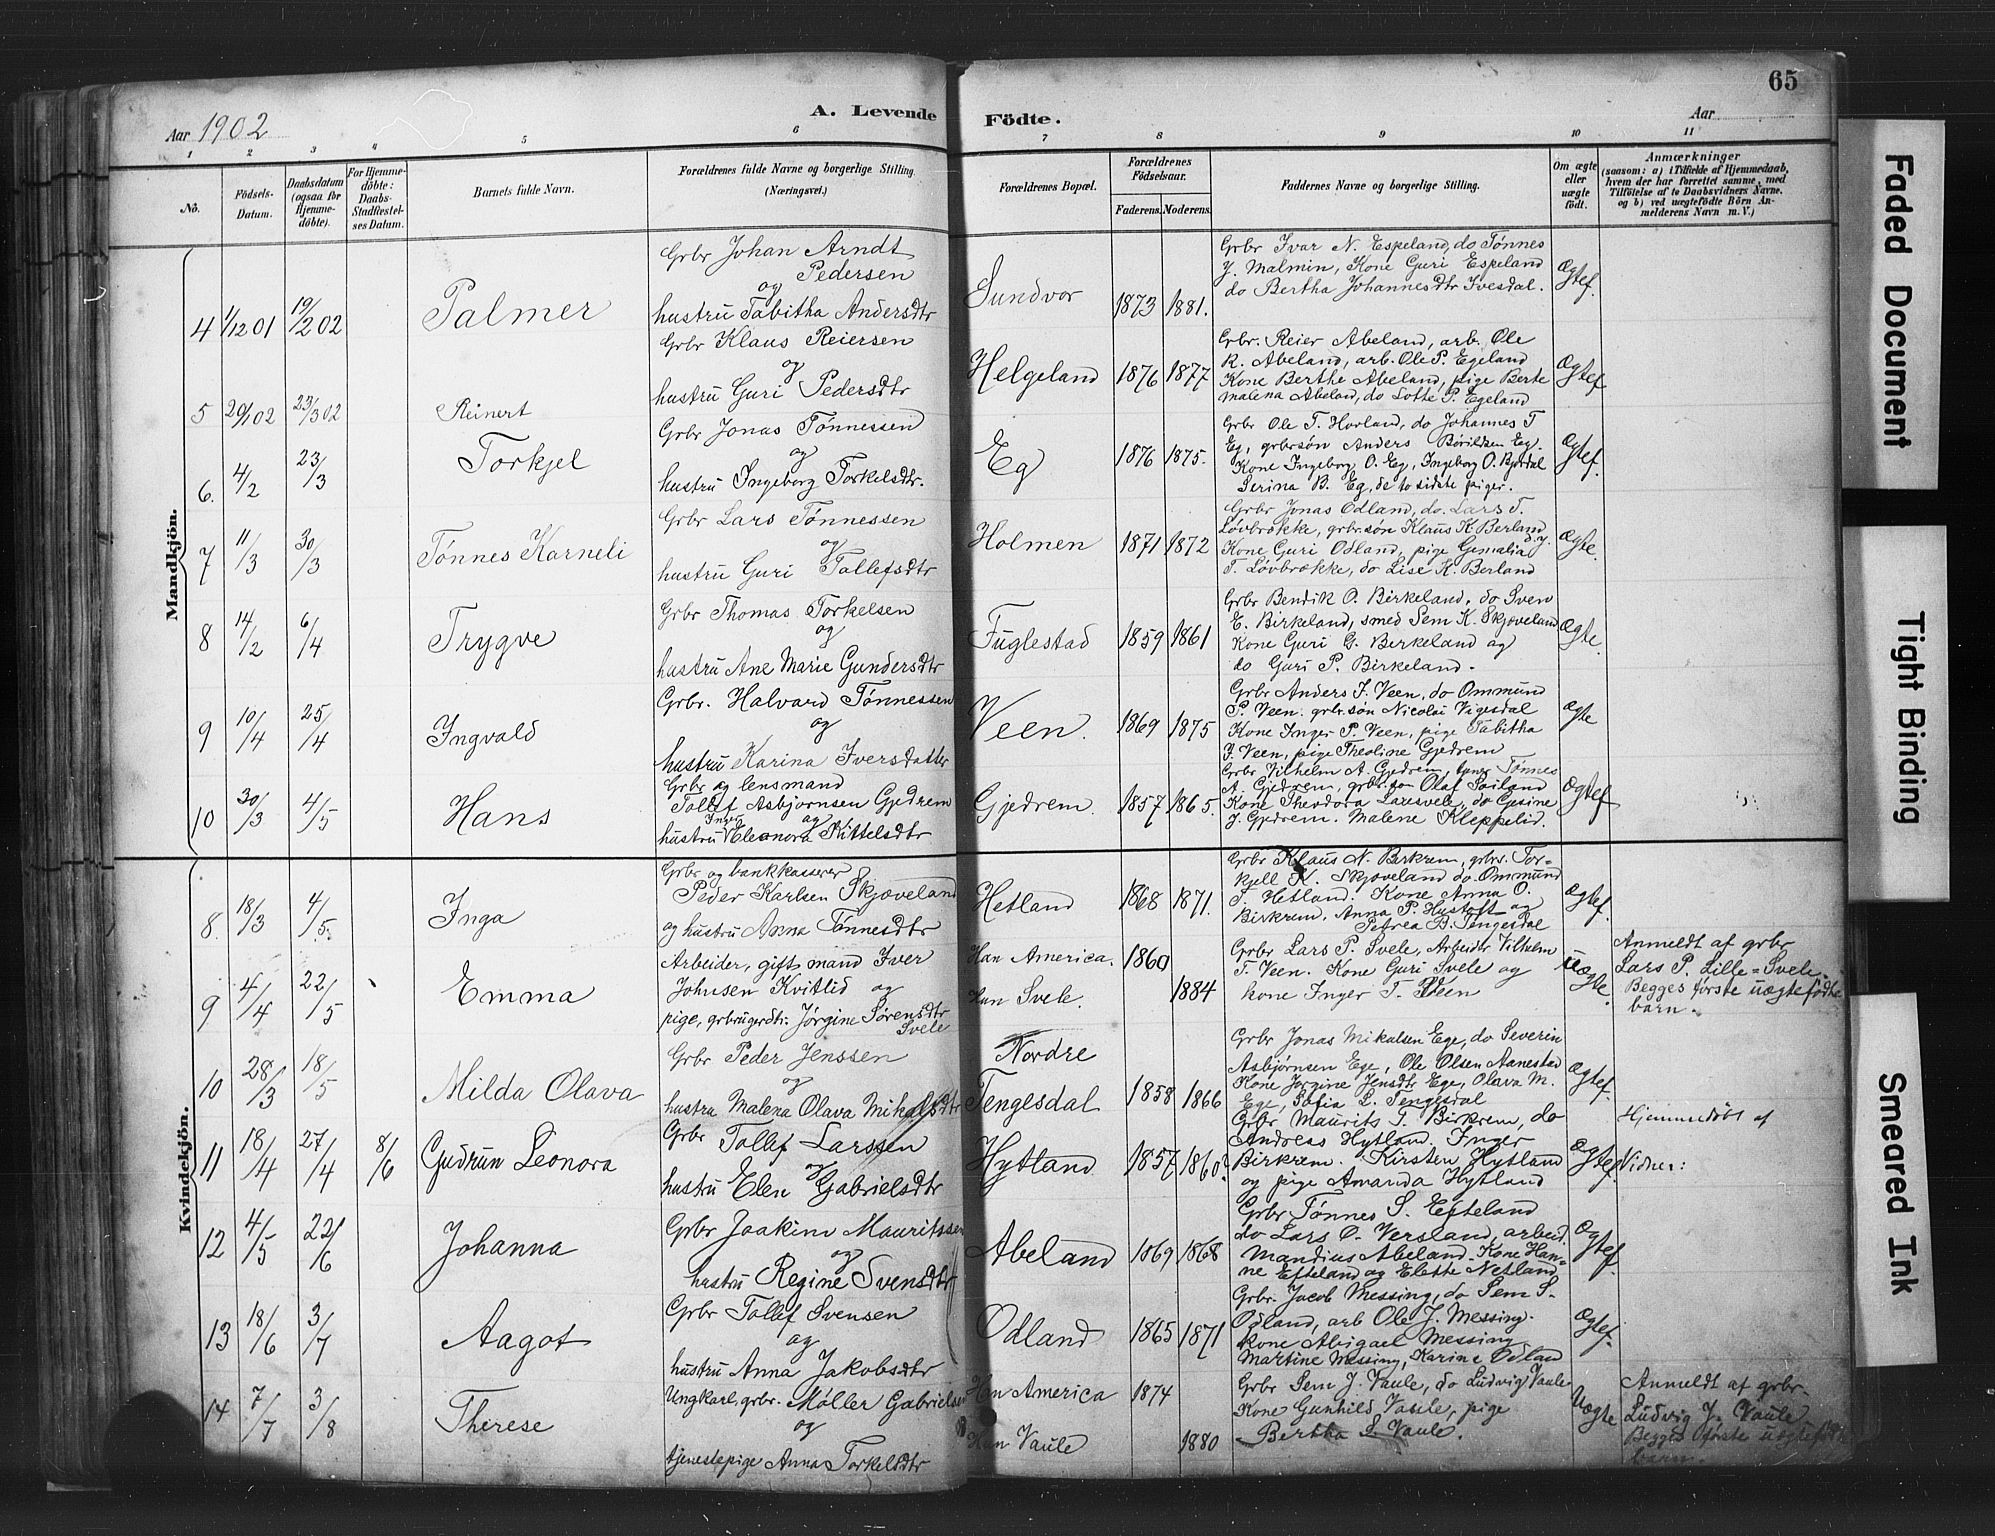 65
A. Levende Födte.
Aar 1902
Aar
1 2 3 4 5 6 7 8 9 10 11
No.
Födsels-Datum.
Daabsdatum (ogsaa for Hjemmedöbte).
For Hjemmedöbte: Daabs-Stadfestelses Datum.
Barnets fulde Navn.
Forældrenes fulde Navne og borgerlige Stilling. (Næringsvei.)
Forældrenes Bopæl.
Forældrenes Födselsaar.
Faderens. Moderens.
Faddernes Navne og borgerlige Stilling.
Om ægte eller uægte födt.
Anmærkninger
(saasom: a) i Tilfælde af Hjemmedaab, hvem der har forrettet samme, med Tilföielse af to Daabsvidners Navne. og b) ved uægtefödte Börn Anmelderens Navn m. V.)
Mandkjön.
4 1/12 01 19/2 02 Palmer
Grbr Johan Arndt
Pedersen
og
hustru Tabitha Andersdtr
Sundvor 1873 1881.
Grbr Ivar N. Espeland, do Tønnes
Y. Malmin, Kone Guri Espeland
do Bertha Johannesdtr Ivesdal.
Ægtef.
5 20/1 02 23/3 02 Reinert
Grbr Klaus Reiersen
og
hustru Guri Pedersdtr
Helgeland 1876 1877
Grbr. Reier Abeland, arb. Ole
R. Abeland, arb. Ole P. Egeland
Kone Berthe Abeland, pige Berte
malena Abeland, do Lotte P. Egeland
Ægtef
6. 4/2 23/3 Torkjel
Grbr Jonas Tønnessen
og
hustru Ingeborg Torkelsdtr.
Eg 1876 1875.
Grbr Ole T. Horland, do Johannes T
Eg, grbrsøn Anders Eg.
Kone Ingeborg O. Eg, Ingeborg O. Bjordal
Serina B. Eg, de to sidste piger.
Ægtef.
7 11/3 30/3 Tønnes Karneli
Grbr Lars Tønnessen
og
hustru Guri Tollefsdtr
Holmen 1871 1872
Grbr Jonas Odland, do. Lars T.
Løvbrøkke, grbr.søn Klaus K. Berland
Kone Guri Odland, pige Gemalia
T. Løvbrøkke, do Lise K. Berland
Ægte.
8 14/2 6/4 Trygve
Grbr Thomas Torkelsen
og
hustru Ane Marie Gundersdtr
Fuglestad 1859 1861
Grbr Bendik O. Birkeland, do Sven
E. Birkeland, smed Sem K. Skjæveland
Kone Guri G. Birkeland og
do Guri P. Birkeland.
Ægte.
9 10/4 25/4 Ingvald
Grbr. Halvard Tønnessen
og
hustru Karina Iversdatter
Veen. 1869 1875
Grbr Anders I. Veen, do Ommund
P. Veen. grbr.søn Nicolai Vigesdal
Kone Inger P. Veen, pige Tabitha
I. Veen, pige Theoline Gjedrem
Ægte
10 30/3 4/5 Hans
Grbr og lensmand
Tollef Asbjørnsen Gjedrem
Inger og
hustru Eleonora Kittelsdtr
Gjedrem. 1857 1865.
Grbr Vilhelm A. Gjedrem, Tønnes
A. Gjedrem, grbr.søn Olaf Soiland
Kone Theodora Laksvele, do Gesine
J. Gjedrem. Malene Kleppelid.
Ægtef
Kvindekjön.
8. 18/3 4/5. Inga
Grbr og bankkasserer
Peder Karlsen Skjæveland
og hustru Anna Tønnesdtr
Hetland 1868 1871.
Grbr Klaus N. Birkrem, grbr. Tor-
kjell K. Skjæveland do. Ommund
T. Hetland. Kone Anna O.
Birkrem, Anna P. Hustoft og
Petrea B. Tengesdal
Ægtef.
9 4/4 22/5 Emma
Arbeider, gift mand Iver
Johnsen Kvitlid og
pige, grbrugerdtr. Jørgine Sørensdtr
Svele
Han America. 1860
Hun Svele. 1884
Grbr Lars P. Svele, Arbeider Vilhelm
T. Veen. Kone Guri Svele og
kone Inger T. Veen
Uægte.
Anmeldt af grbr
Lars P. Lille-Svele.
Begges første uægtefødte
barn.
10 28/3 18/5 Milda Olava
Grbr Peder Jenssen
og
hustru Malena Olava Mikalsdtr
Nordre
Tengesdal 1858 1866
Grbr Jonas Mikalsen Ege, do Severin
Asbjørnsen Ege, Ole Olsen Aanestad
Kone Jorgine Jensdtr Ege, Olava M.
Ege, Sofia L. Tengesdal
Ægtef.
11 18/4 27/4 8/6 Gudrun Leonora
Grbr Tollef Larssen
og
hustru Elen Gabrielsdtr
Hytland 1857 1860.
Grbr Maurits T. Birkrem, do
Andreas Hytland. Inger
Birkrem. Kirsten Hytland
og pige Amanda Hytland
Ægtef.
Hjemmedøbt af
Vidner:
12 4/5 22/6 Johanna
Grbr Joakim Mauritssen
og
hustru Regine Svensdtr
Abeland 1869 1868
Grbr Tønnes S. Efteland
do Lars O. Versland, arbeid.
Mandius Abeland. Kone Han-
ne Efteland og Elette Netland
Ægtef.
13 18/6 3/7 Aagot
Grbr Tollef Svensen
og
hustru Anna Jakobsdtr
Odland 1865 1871
Grbr. Jacob Messing, do Sem S.
Odland, arb Ole J. Messing.
kone Abigael Messing
Martine Messing, Karine Odland
Ægtef.
14 7/7 3/8 Therese
Ungkarl, grbr. Møller Gabrielsen
og
tjenestepige Anna Torkelsdtr
Han America 1874
Hun Vaule 1880
Grbr Sem J. Vaule, do Ludvig Vaule
Kone Gunhild Vaule, pige
Bertha S. Vaule.
Uægte
Anmeldt af grbr.
Ludvig J. Vaule
Begges første uægtefødte
barn.
Faded Document
Tight Binding
Smeared Ink